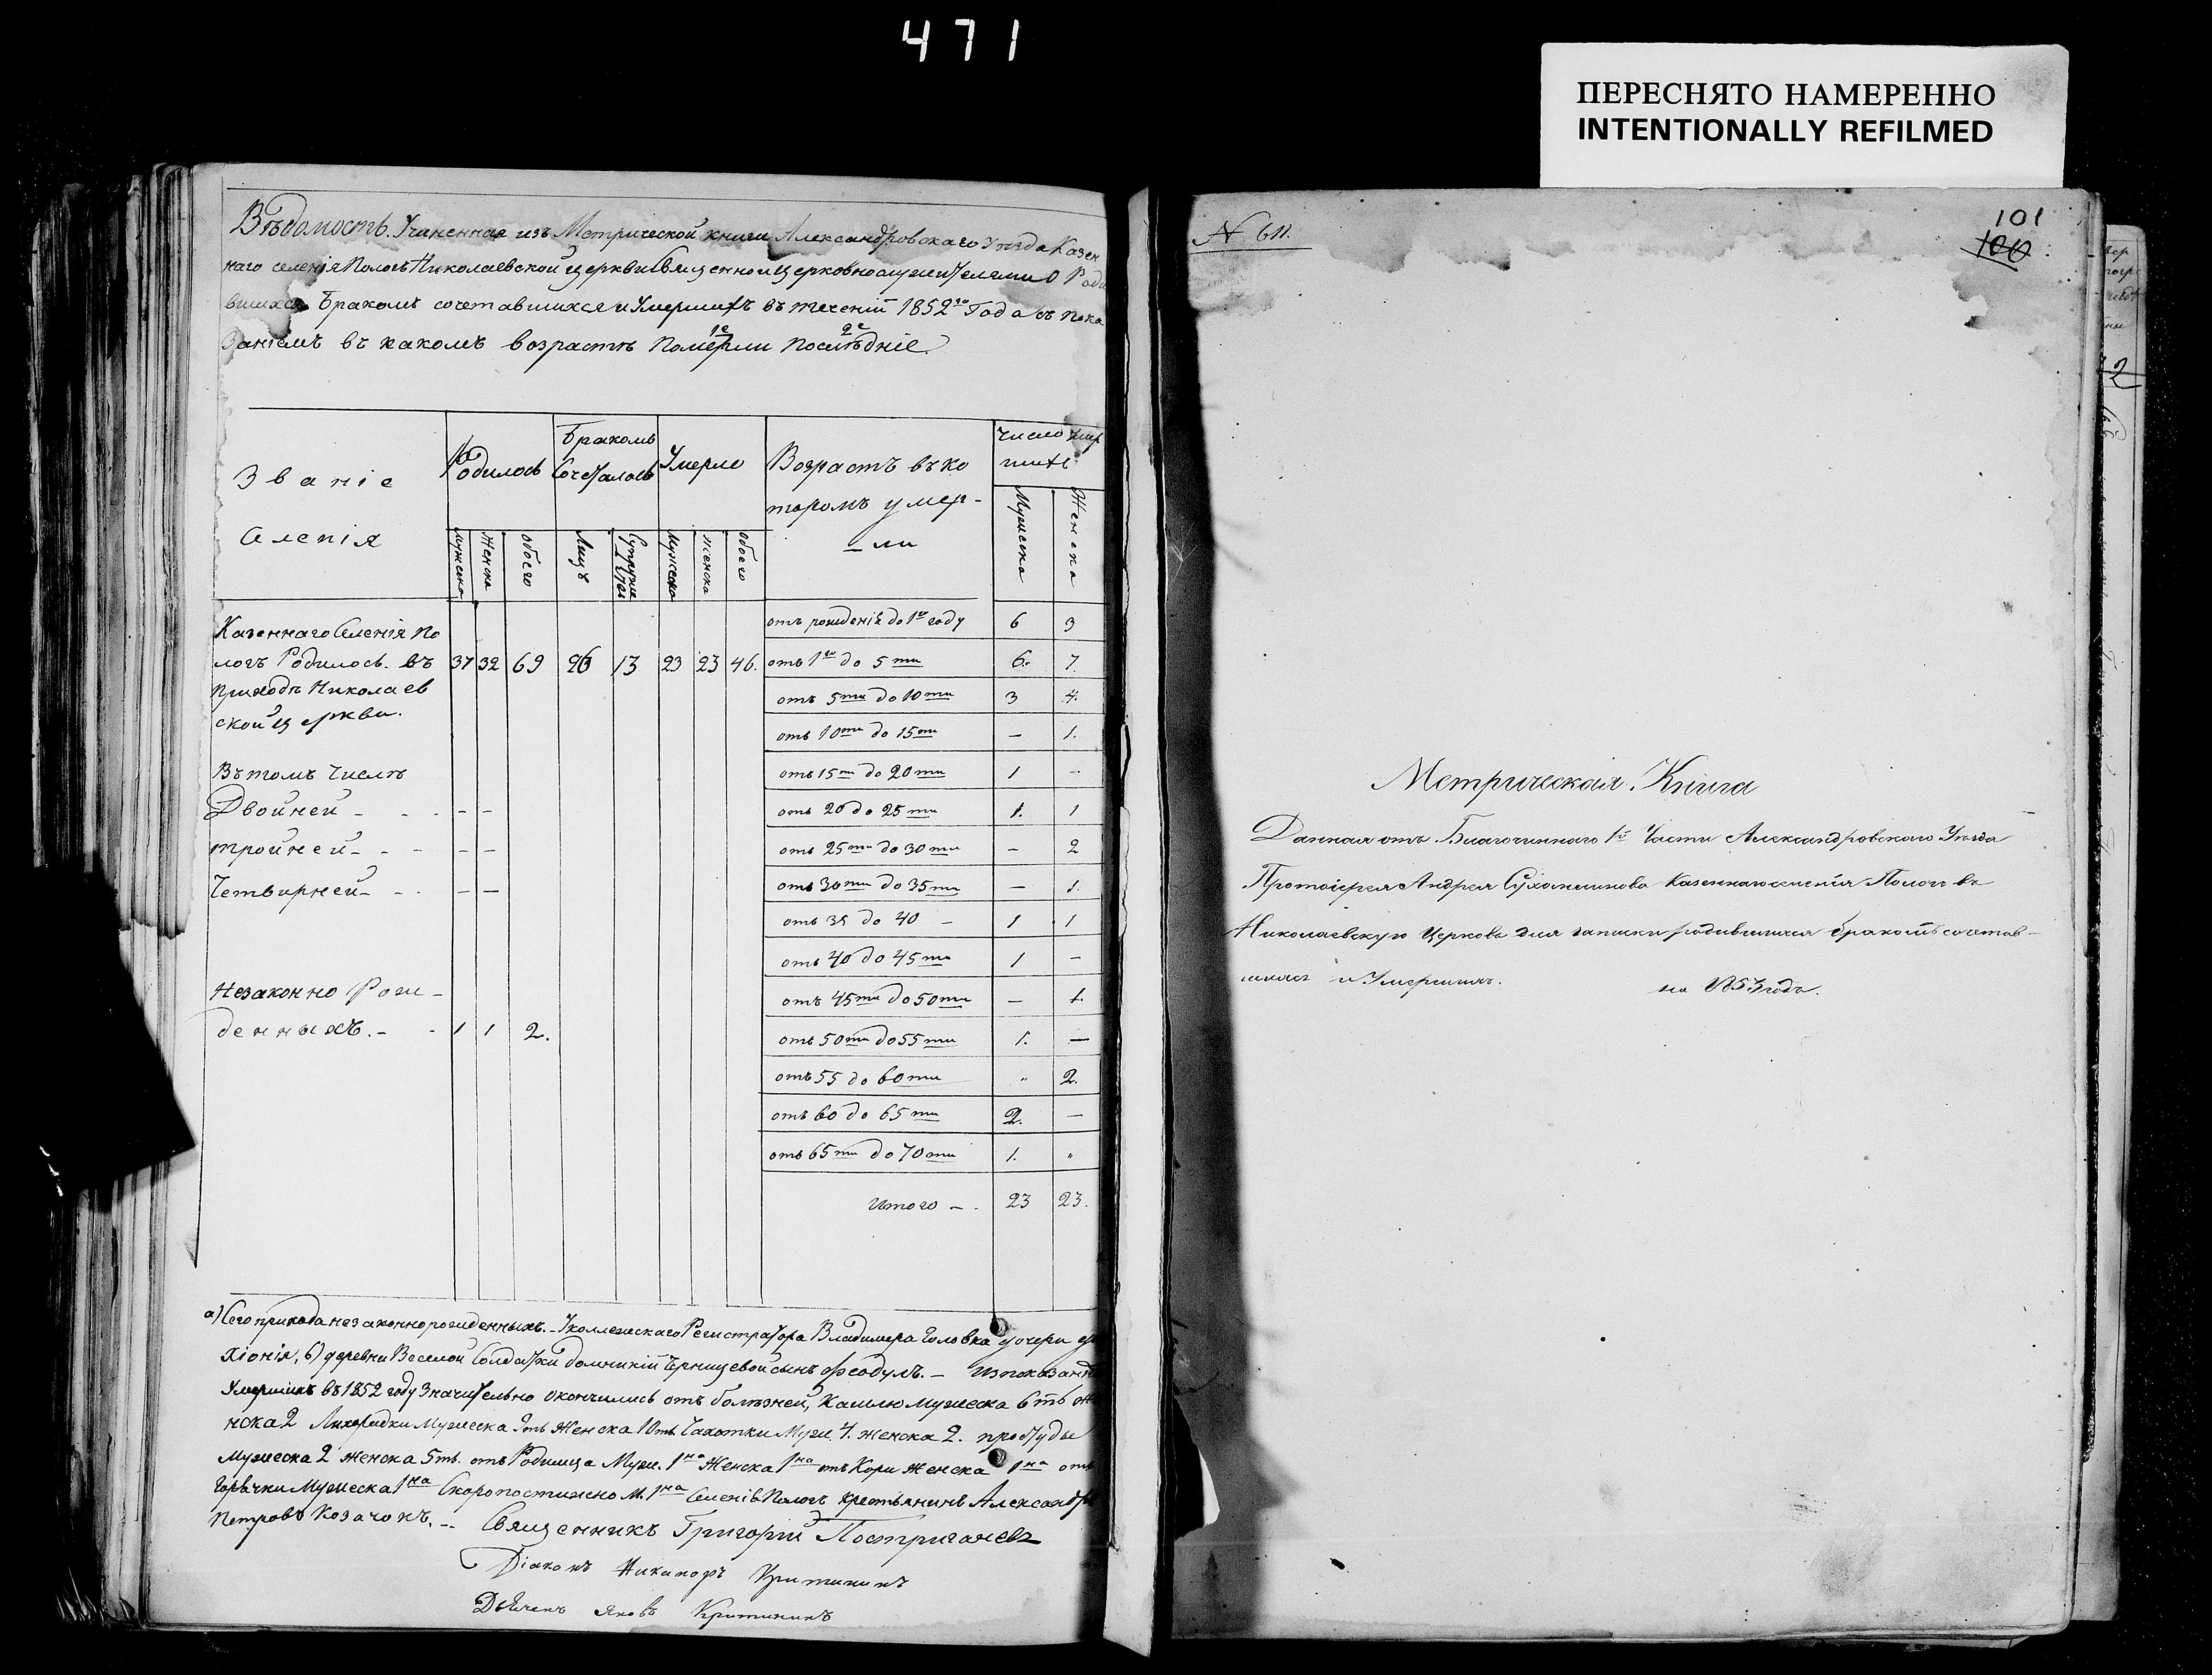 471
ПЕРЕСНЯТО НАМЕРЕННО
INTENTIONALLY REFILMED
Вѣдомость. Учиненная изъ Метрической книги Александровскаго Уѣзда Казен
наго селенія Пологъ Николаевской церкви Священноицерковнослужителями О Роди
вшихся Бракомъ сочетавшихся и Умершихъ въ теченіи 1852го Года съ пока
заніемъ въ какомъ возрастѣ померли последніе.
Званіе
Селенія
Родилось
Бракомъ
Сочеталось
Умерло
Возрастъ въ ко
торомъ умер-
ли
Число умер
шихъ
Мужеска
Женска
обоего
Лицъ
Супруже
ствъ
Мужеска
женска
обоего
Мужеска
Женска
Казеннаго Селенія По
логъ Родилось. въ
приходѣ Николаев
ской церкви.
37 32 69 26 13 23 23 46.
Въ томъ числѣ
Двойней - - - - -
тройней - - - - -
Четверней - - - - -
Незаконно Рож-
денныхъ. - - 1 1 2.
отъ рожденія до 1го году 6 3
отъ 1го до 5ти 6. 7.
отъ 5ти до 10ти 3 4.
отъ 10ти до 15ти — 1.
отъ 15ти до 20ти 1 —
отъ 20 до 25ти 1. 1
отъ 25ти до 30ти — 2
отъ 30ти до 35ти — 1.
отъ 35 до 40 — 1 1
отъ 40 до 45ти 1 —
отъ 45ти до 50ти — 1.
отъ 50ти до 55ти 1. —
отъ 55 до 60ти " 2.
отъ 60 до 65ти 2. —
отъ 65ти до 70ти 1. "
Итого — . 23 23.
а) Сего прихода незаконнорожденныхъ. - Уколлежскаго Регистратора Владимера Головка дочери
Хіонія, б) деревни Веселой Солдатки Черницевой сынъ Феодулъ. —
Умершихъ въ 1852 году Значительно окончились отъ болѣзней, Кашлю Мужеска 6ть Же
нска 2 Лихорадки Мужеска Женска 10ть Чахотки Муж. 4. женска 2. простуды
Мужеска 2 женска 5ть. отъ Родимца Муж. 1на Женска 1на отъ Кори Женска 1на отъ
Горячки Мужеска 1на Скоропостижно М. 1на Селенія Пологъ крестьянинъ Александръ
Петровъ Козачокъ. --
Священникъ Григорій Постригачевъ
Діаконъ Никаноръ
Дьячекъ Яковъ
N 611.
101
100
Метрическая Книга
Данная отъ Благочиннаго 1й Части Александровского Уѣзда
Протоіерея Андрея Казеннагоселенія Пологъ въ
Николаевскую Церковь для записки родившихся бракомъ сочетав-
шихся и Умершихъ. на 1853 годъ.